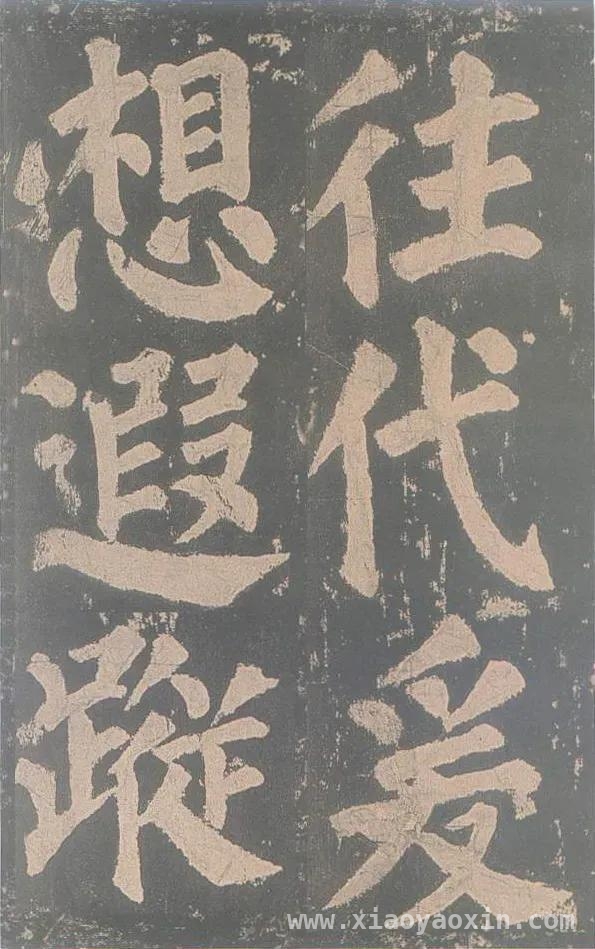 往代爰
想遐蹤
www.xiaoyaoxin.com